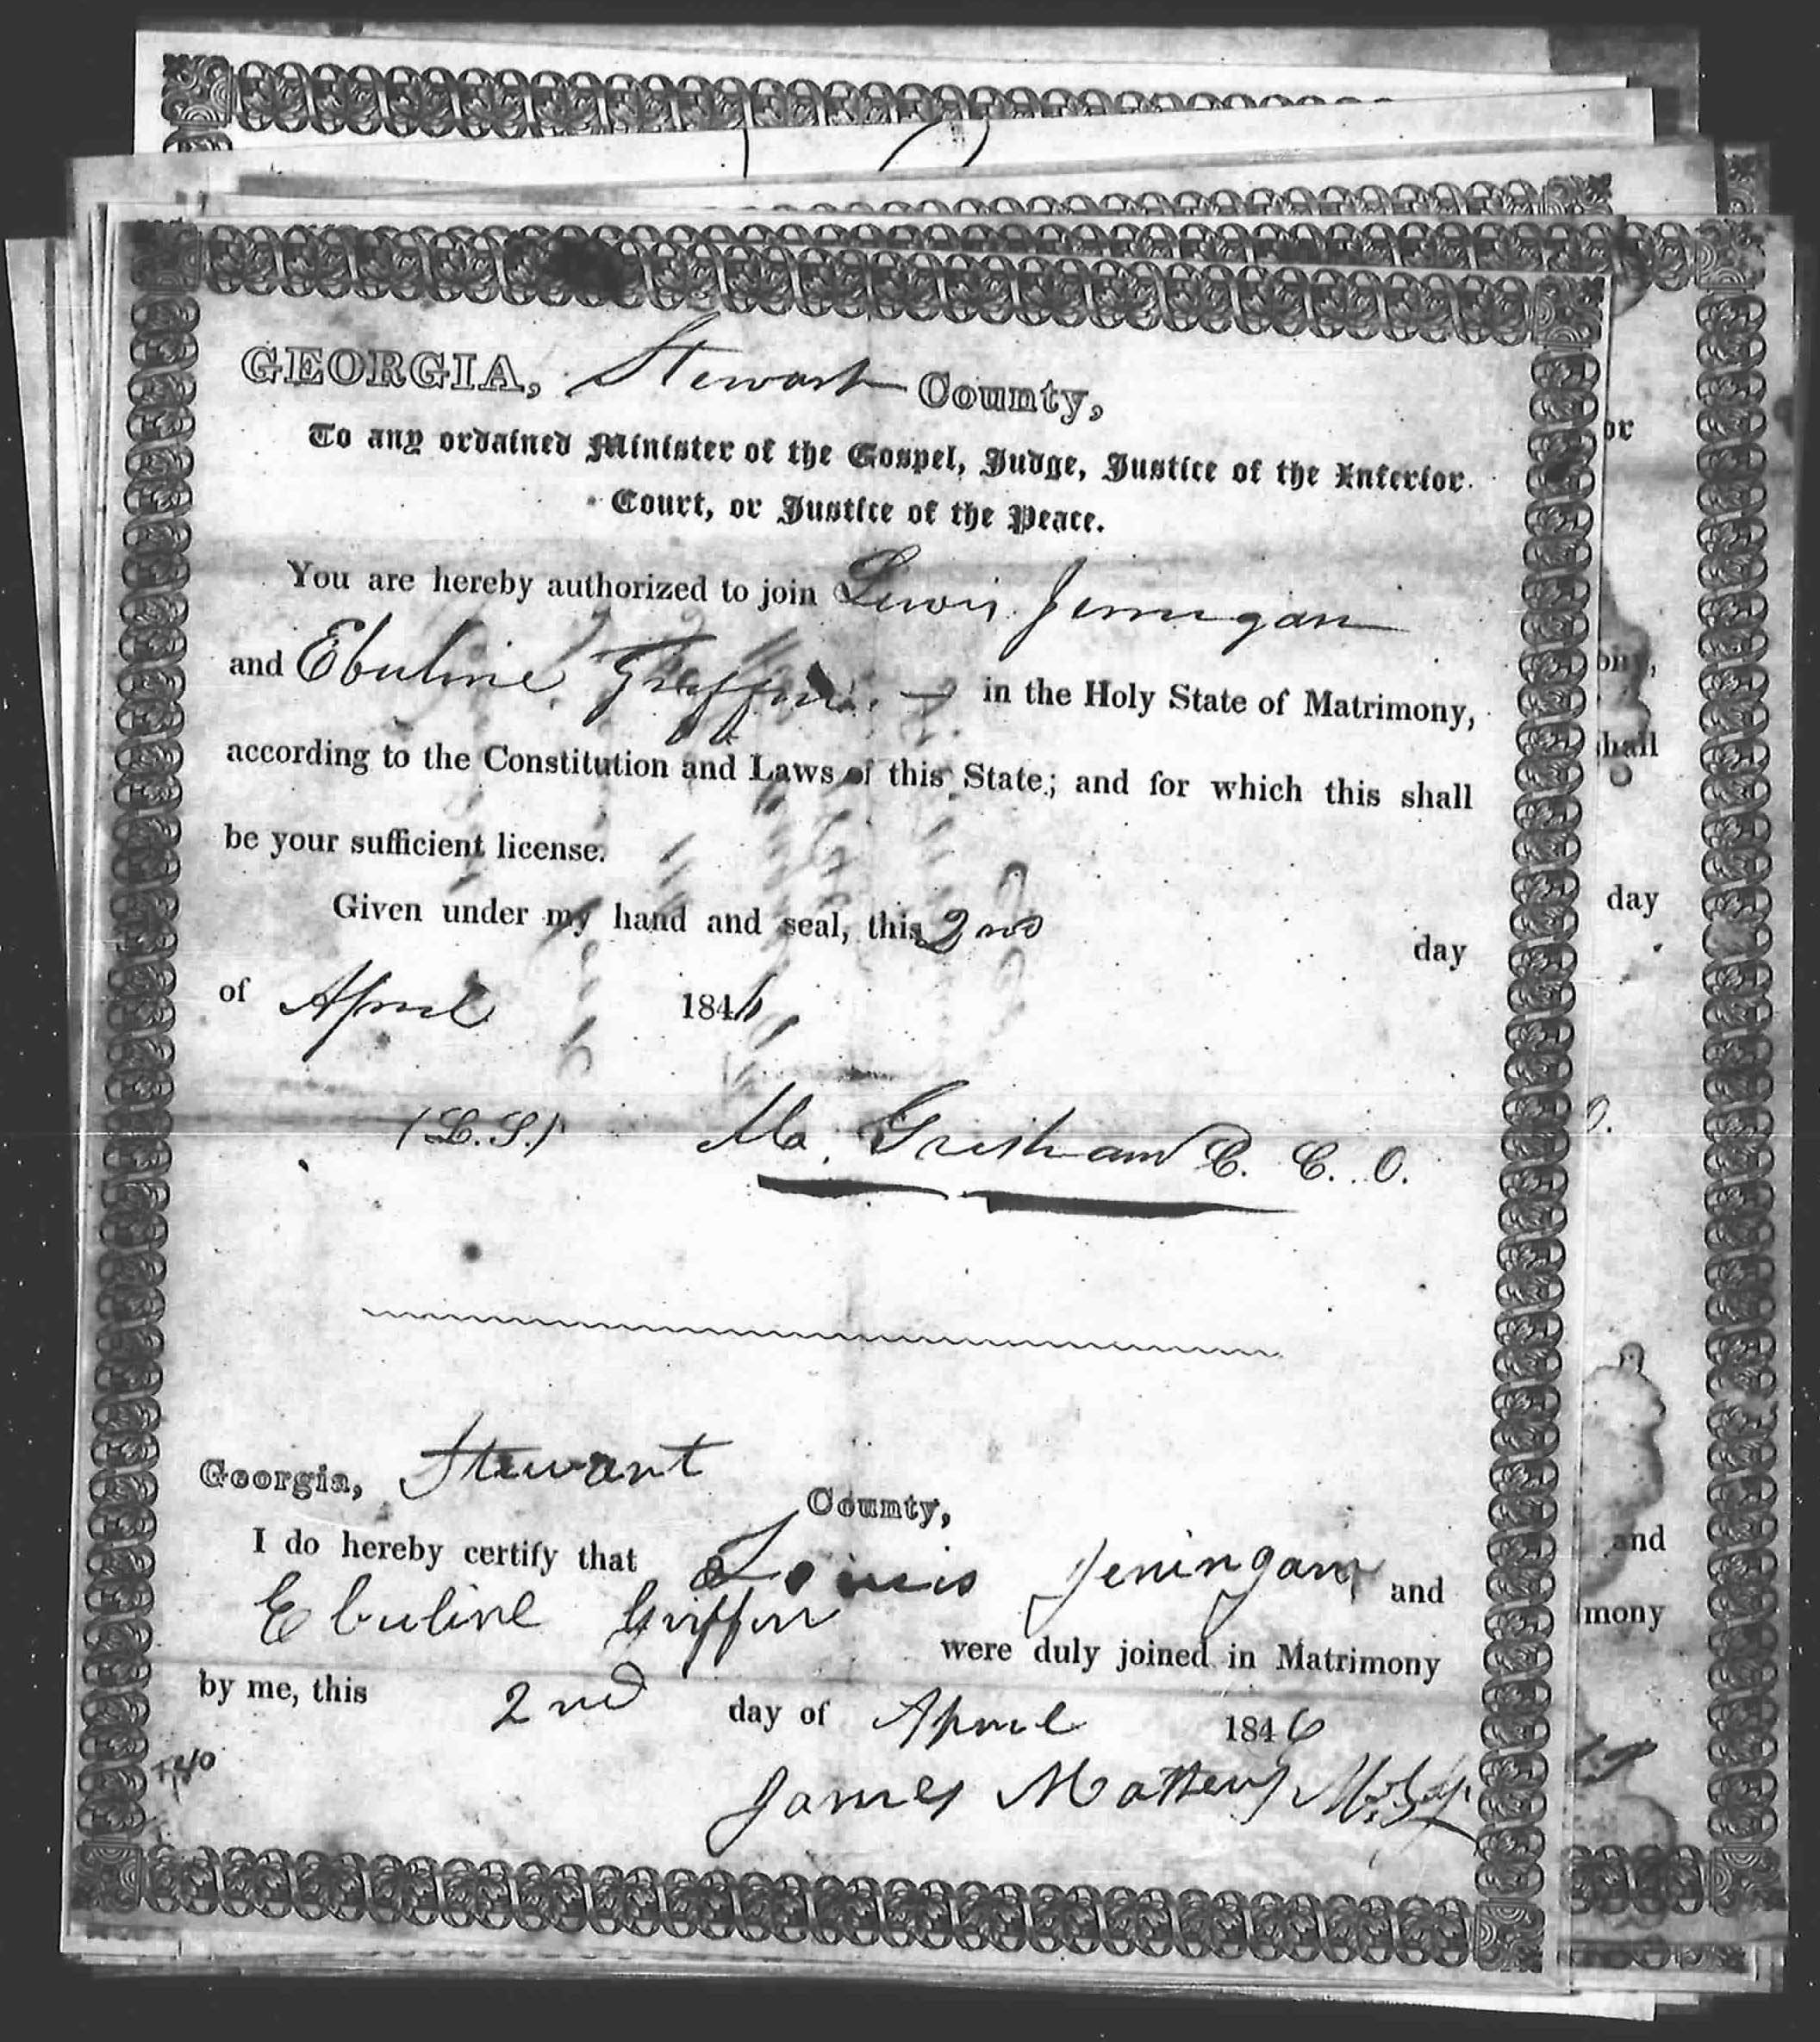 GEORGIA, Stewart County,
To any ordained Minister of the Gospel, Judge, Justice of the Inferior
Court, or Justice of the Peace.
You are hereby authorized to join Lewis Jernigan
and Ebuline Griffin in the Holy State of Matrimony,
according to the Constitution and Laws of this State; and for which this shall
be your sufficient license.
Given under my hand and seal, this 2nd day
of April 1846
(L.S.) M. Gresham C. C. O.
Georgia, Stewart County,
I do hereby certify that Lewis Jeningan and
Ebuline Griffin were duly joined in Matrimony
by me, this 2nd day of April 1846
James Mathews
or
ony,
shall
day
O.
and
mony